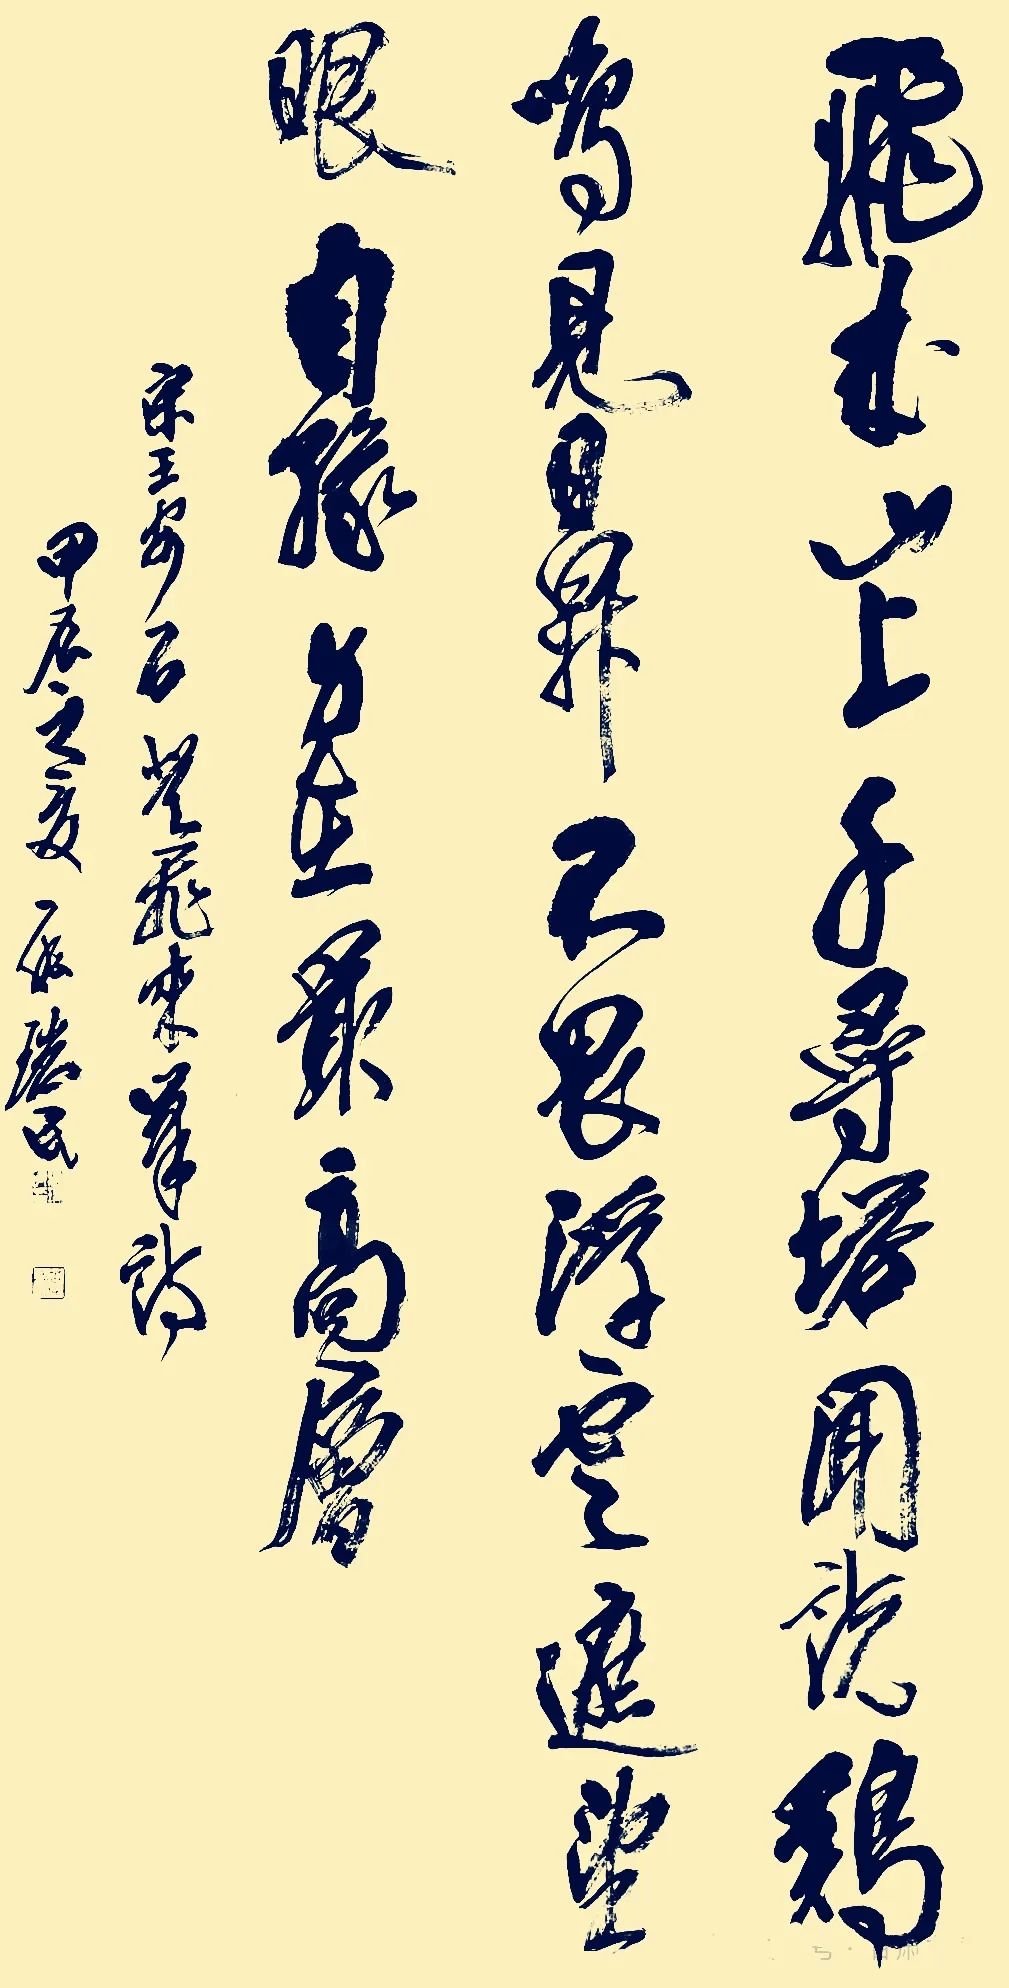 飛來山上千尋塔聞說鷄
鳴見日昇不畏浮雲遮望
眼自緣身在最高層
宋王安石登飛來峯詩
甲辰之夏 瑞民